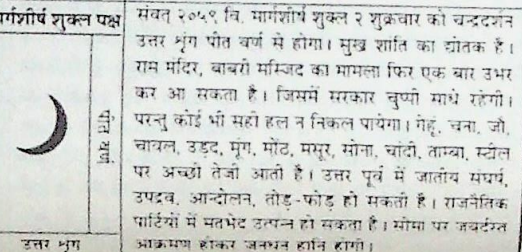 मार्गशीर्ष शुक्ल पक्ष
पीत वर्ण
उत्तर श्रृंग
संवत् २०५९ वि. मार्गशीर्ष शुक्ल २ शुक्रवार को चन्द्रदर्शन
उत्तर श्रृंग पीत वर्ण से होगा। सुख शांति का द्योतक है।
राम मंदिर, बाबरी मस्जिद का मामला फिर एक बार उभर
कर आ सकता है। जिसमें सरकार चुप्पी साधे रहेगी।
परन्तु कोई भी सही हल न निकल पायेगा। गेहूं, चना, जौ,
चावल, उड़द, मूंग, मोंठ, मसूर, सोना, चांदी, ताम्बा, स्टील
पर अच्छी तेजी आती है। उत्तर पूर्व में जातीय संघर्ष,
उपद्रव, आन्दोलन, तोड़-फोड़ हो सकती है। राजनैतिक
पार्टियों में मतभेद उत्पन्न हो सकता है। सीमा पर जबर्दस्त
आक्रमण होकर जनधन हानि होगी।